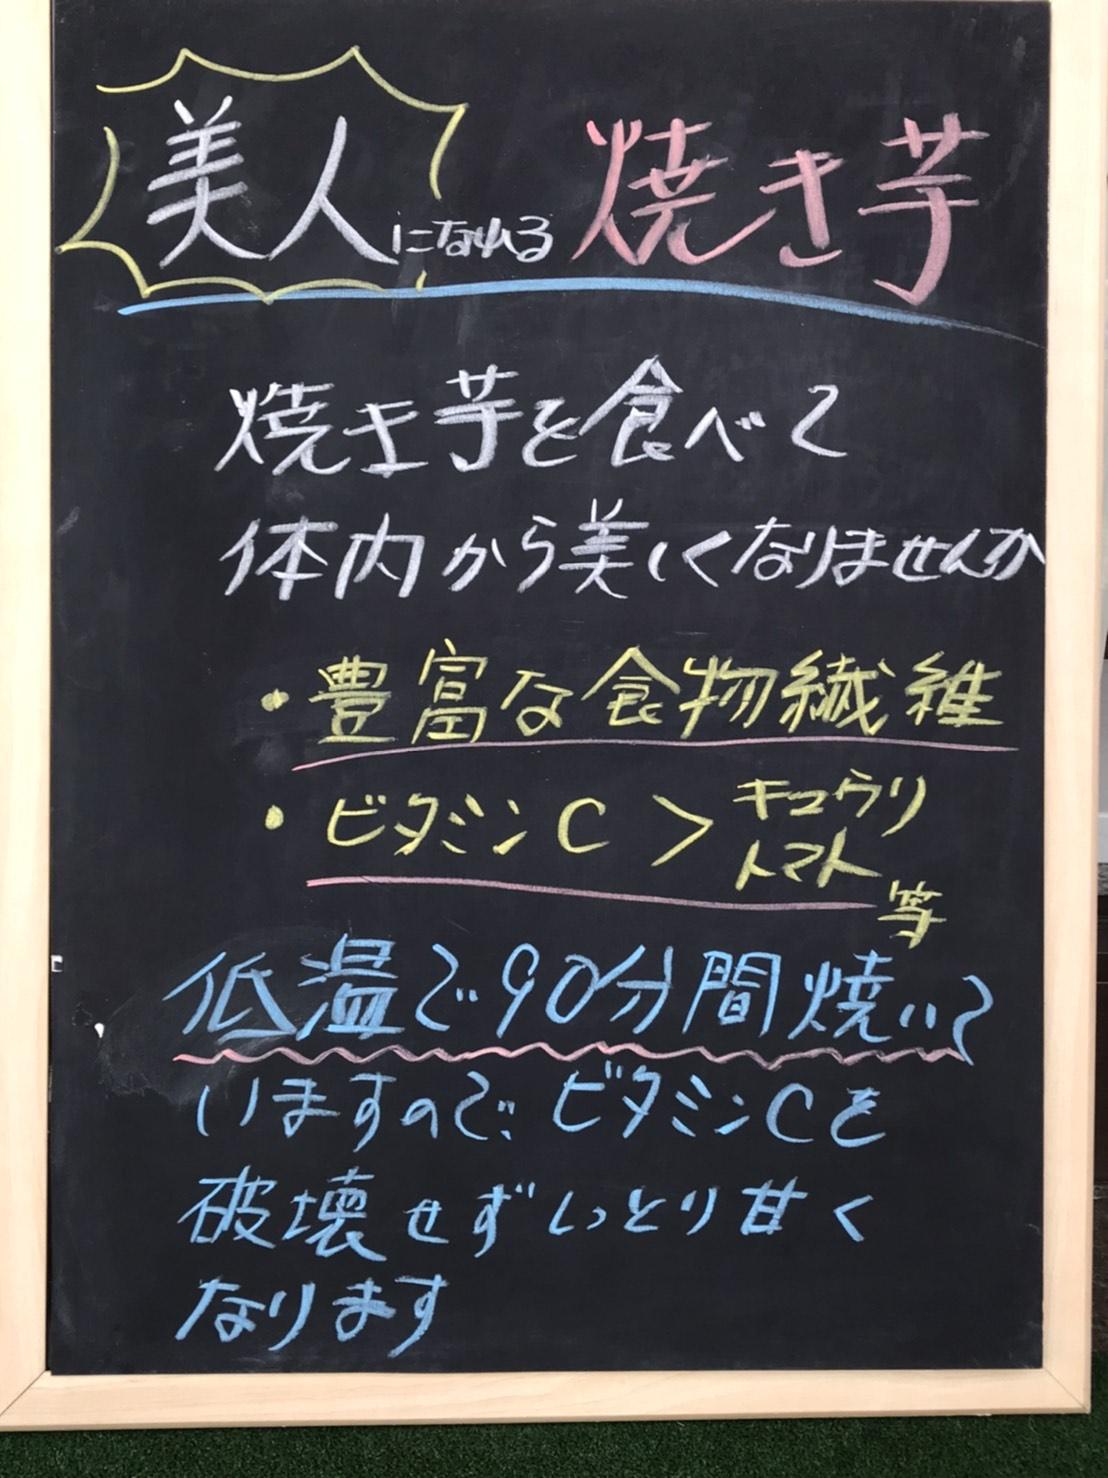 美人になれる 焼き芋
焼き芋を食べて
体内から美しくなりませんか
・豊富な食物繊維
・ビタミンC > キュウリ
トマト
等
低温で90分間焼いて
いますので、ビタミンCを
破壊せずしっとり甘く
なります